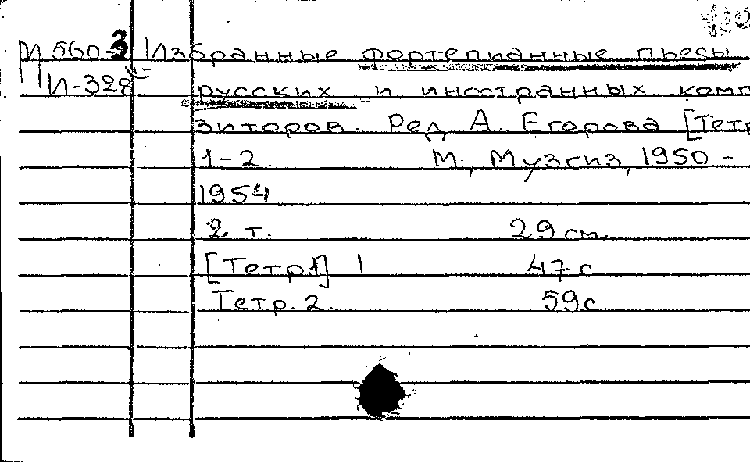 И 560-3 Избранные фортепианные пьесы
И-328 русских и иностранных комп
зиторов. Ред А. Егорова [Тетр
1-2 М, Музгиз, 1950 -
1954
2 т. 29 см.
[Тетр1] 1 47 с
Тетр. 2. 59с